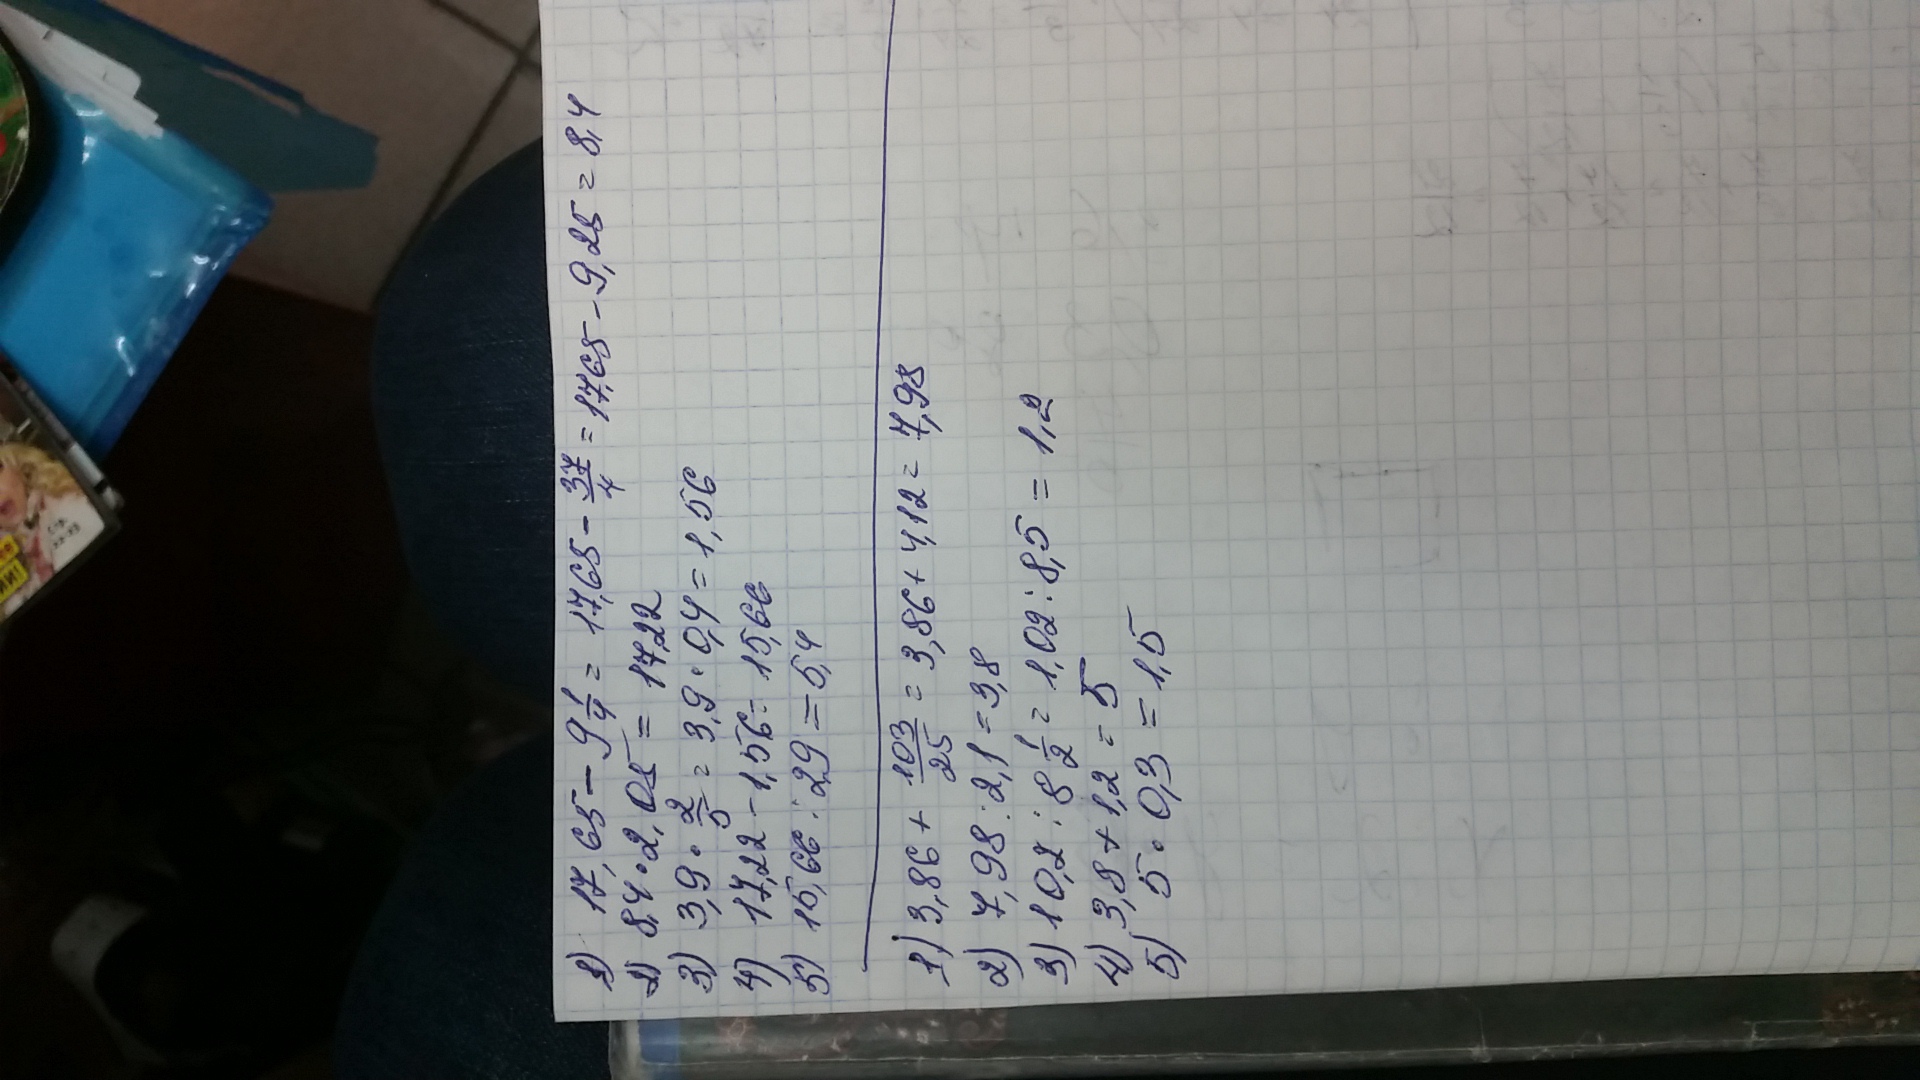 1) 17,65 - 9 1/4 = 17,65 - 37/4 = 17,65 - 9,25 = 8,4
2) 8,4 · 2,05 = 17,22
3) 3,9 · 2/5 = 3,9 · 0,4 = 1,56
4) 17,22 - 1,56 = 15,66
5) 15,66 : 2,9 = 5,4
1) 3,86 + 103/25 = 3,86 + 4,12 = 7,98
2) 7,98 : 2,1 = 3,8
3) 10,2 : 8 1/2 = 1,02 : 8,5 = 1,2
4) 3,8 + 1,2 = 5
5) 5 · 0,3 = 1,5